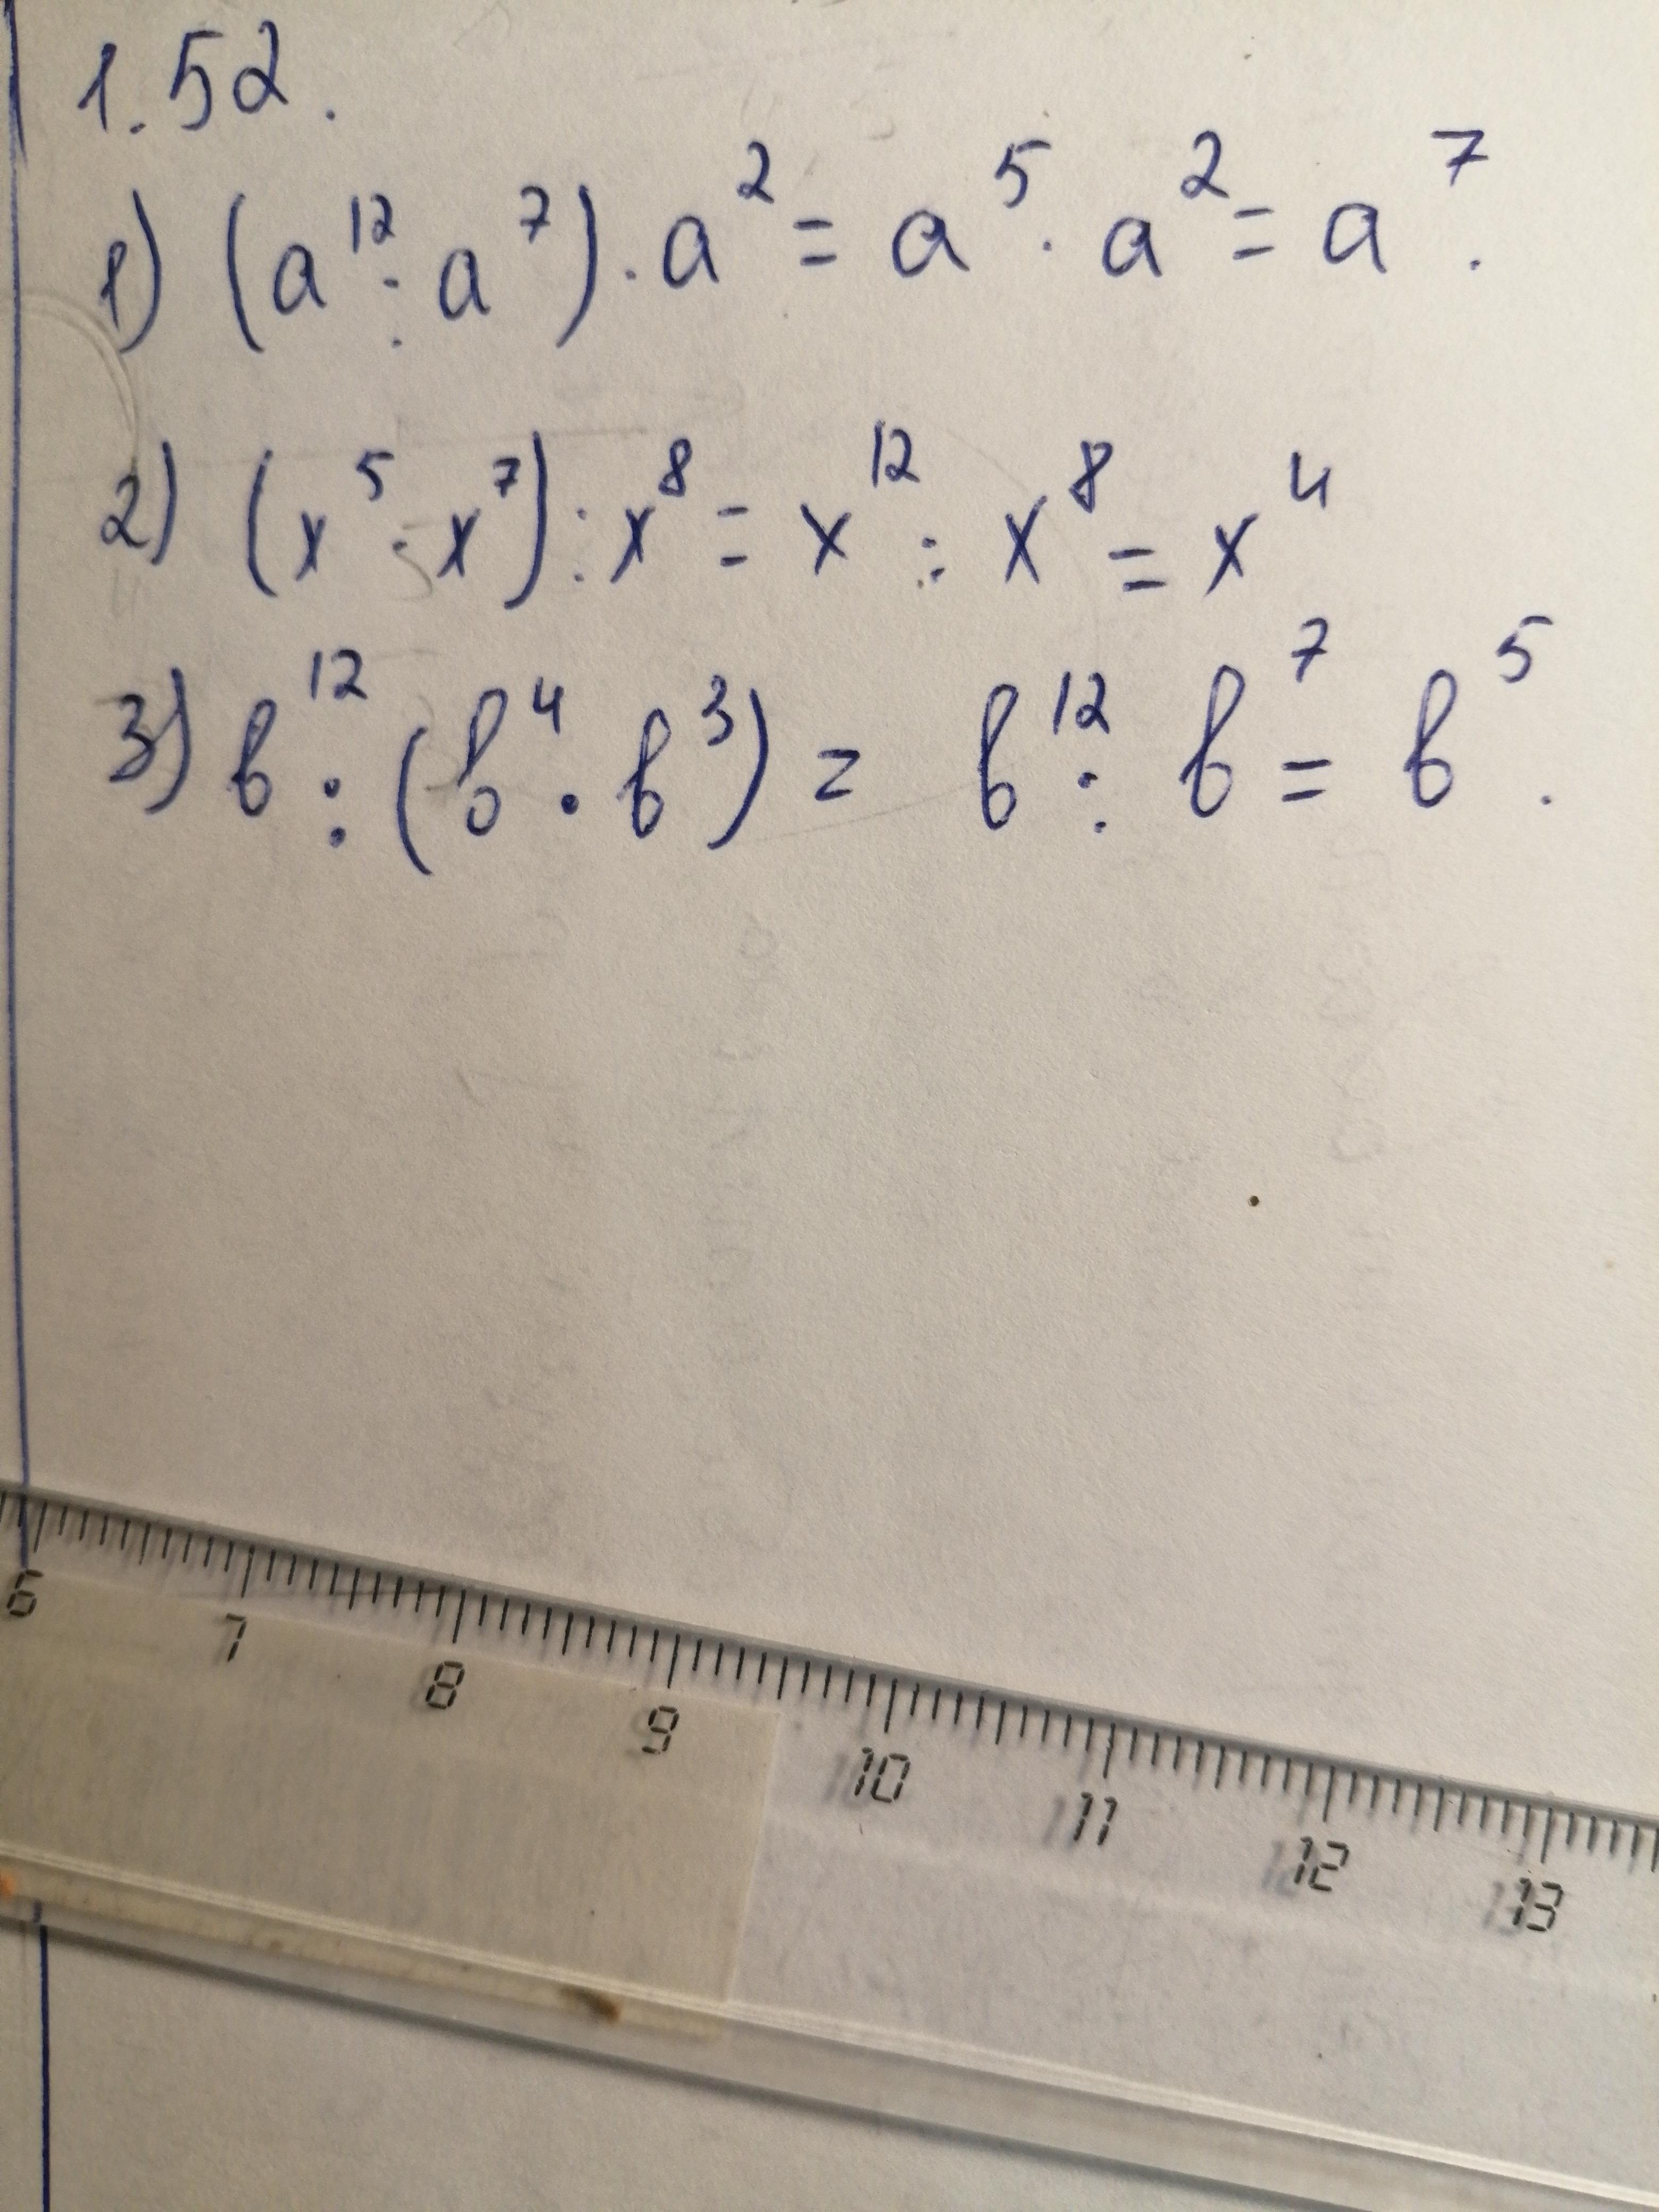 1.52.
1) (a¹² : a⁷) · a² = a⁵ · a² = a⁷.
2) (x⁵ · x⁷) : x⁸ = x¹² : x⁸ = x⁴
3) b¹² : (b⁴ · b³) = b¹² : b⁷ = b⁵.
6 7 8 9 10 11 12 13